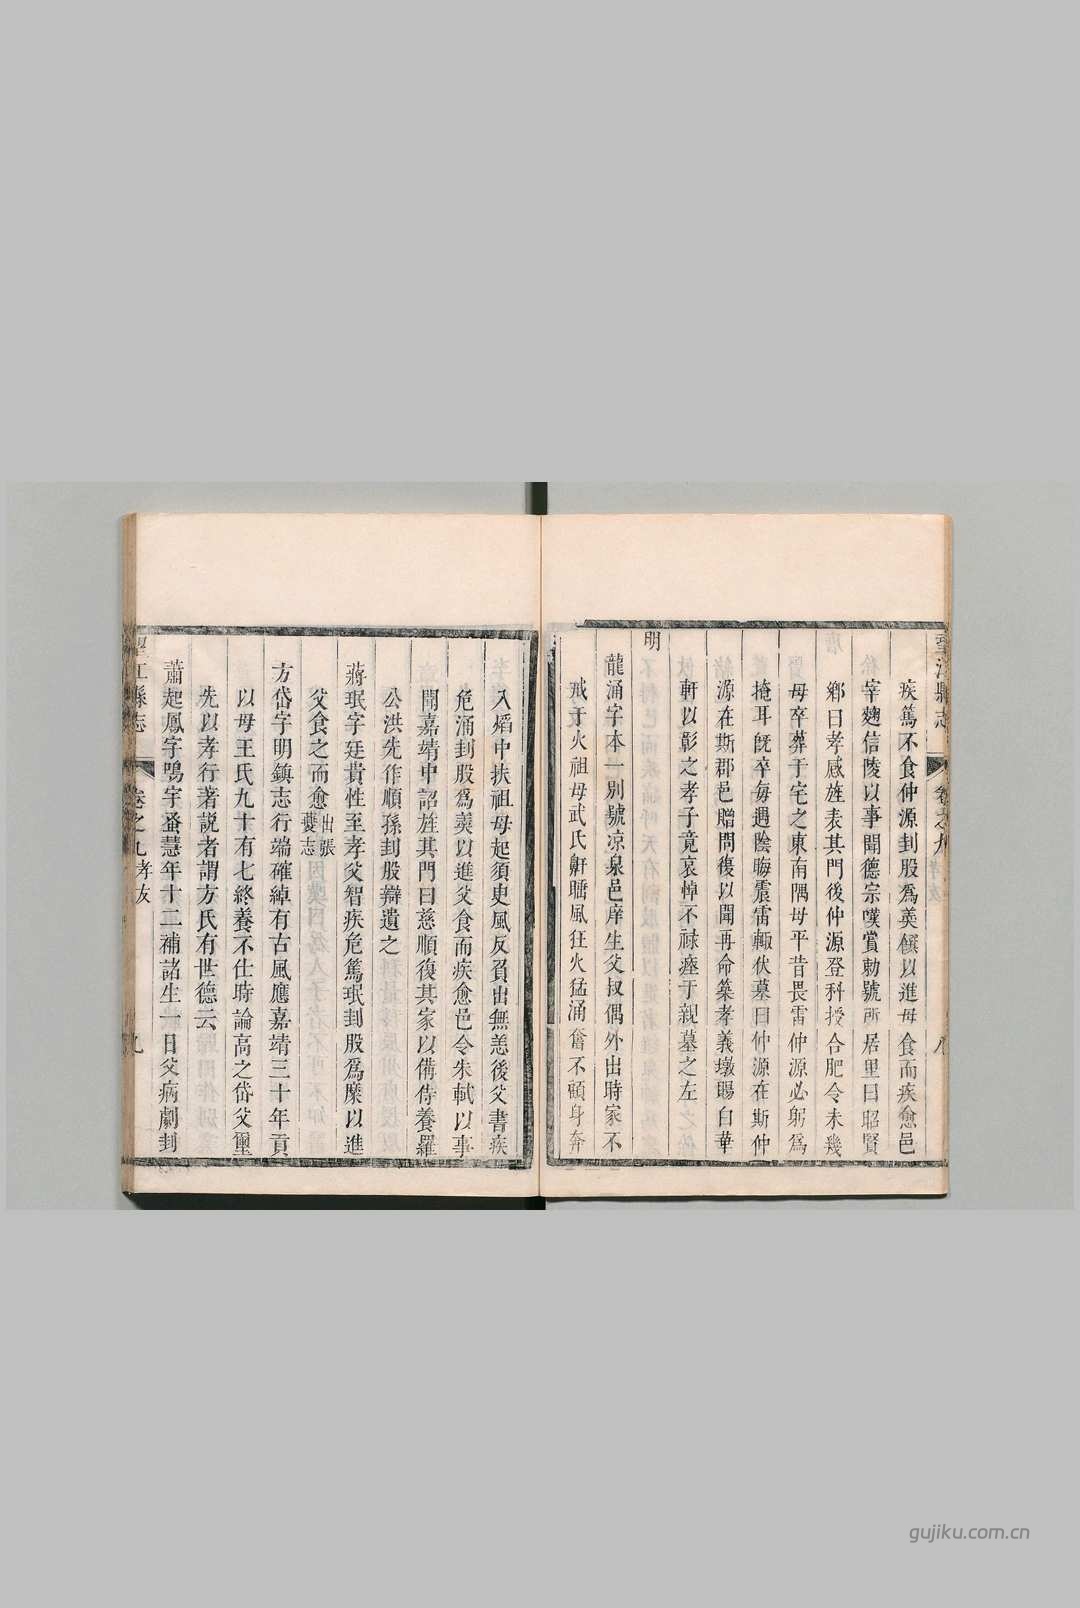 望江縣志 卷之九 孝友 八
疾篤不食仲源刲股爲羹饌以進母食而疾愈邑
宰麴信陵以事聞德宗嘆賞勅號所居里曰昭賢
鄉曰孝感旌表其門後仲源登科授合肥令未幾
母卒葬于宅之東南隅母平昔畏雷仲源必躬爲
掩耳旣卒每遇陰晦震雷輙伏墓曰仲源在斯仲
源在斯郡邑贈問復以聞再命築孝義墩賜白華
軒以彰之孝子竟哀悼不祿瘞于親墓之左
明
龍涌字本一別號凉泉邑庠生父叔偶外出時家不
戒于火祖母武氏鼾瞶風狂火猛涌奮不顧身奔
入熖中扶祖母起須臾風反貧出無恙後父書疾
危涌刲股爲羮以進父食而疾愈邑令朱軾以事
聞嘉靖中詔旌其門曰慈順復其家以備侍養羅
公洪先作順孫刲股辯遺之
蔣珉字廷貴性至孝父智疾危篤珉刲股爲糜以進
父食之而愈 出張夔志
方岱字明鎮志行端確綽有古風應嘉靖三十年貢
以母王氏九十有七終養不仕時論高之岱父璽
先以孝行著說者謂方氏有世德云
蕭起鳳字鳴宇蚤慧年十二補諸生一日父病劇刲
望江縣志 卷之九 孝友 九
gujiku.com.cn